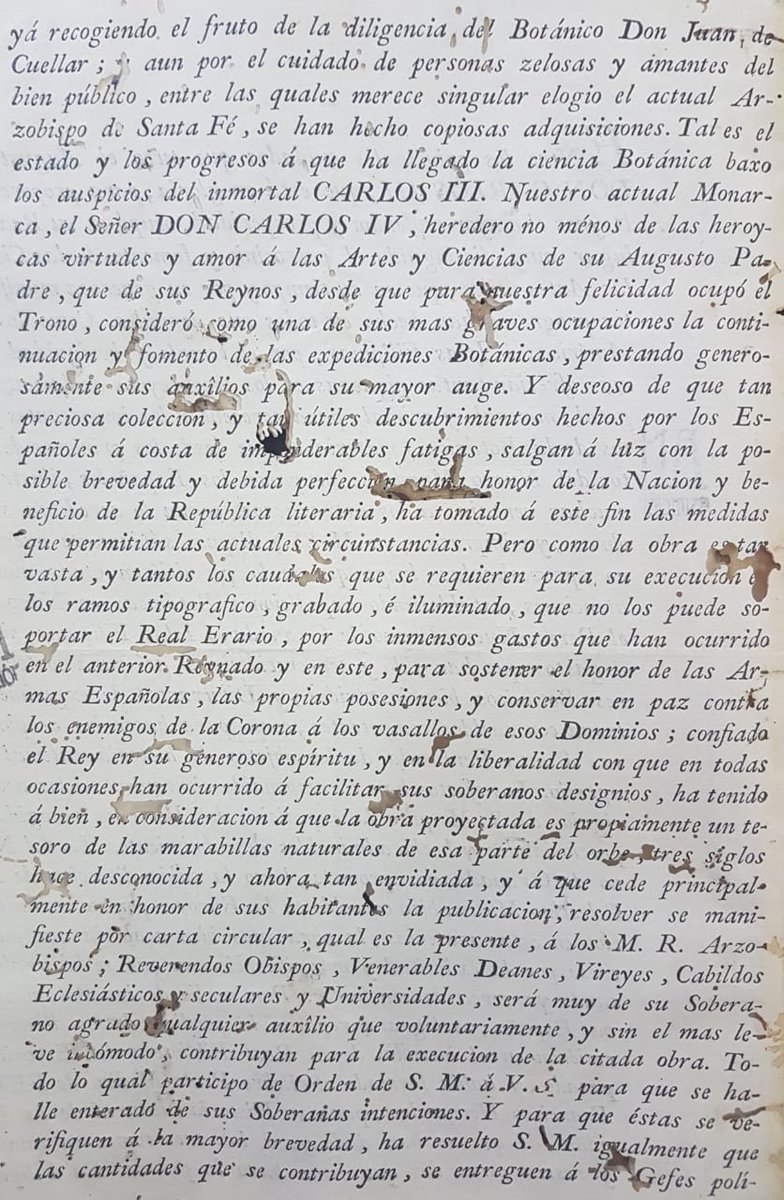 yá recogiendo el fruto de la diligencia del Botánico Don Juan de
Cuellar; y aun por el cuidado de personas zelosas y amantes del
bien público, entre las quales merece singular elogio el actual Ar-
zobispo de Santa Fé, se han hecho copiosas adquisiciones. Tal es el
estado y los progresos á que ha llegado la ciencia Botánica baxo
los auspicios del inmortal CARLOS III. Nuestro actual Monar-
ca, el Señor DON CARLOS IV, heredero no ménos de las heroy-
cas virtudes y amor á las Artes y Ciencias de su Augusto Pa-
dre, que de sus Reynos, desde que para nuestra felicidad ocupó el
Trono, consideró como una de sus mas graves ocupaciones la conti-
nuacion y fomento de las expediciones Botánicas, prestando genero-
samente sus auxîlios para su mayor auge. Y deseoso de que tan
preciosa coleccion, y tan útiles descubrimientos hechos por los Es-
pañoles á costa de imponderables fatigas, salgan á luz con la po-
sible brevedad y debida perfeccion para honor de la Nacion y be-
neficio de la República literaria, ha tomado á este fin las medidas
que permitian las actuales circunstancias. Pero como la obra es tan
vasta, y tantos los caudales que se requieren para su execucion en
los ramos tipografico, grabado, é iluminado, que no los puede so-
portar el Real Erario, por los inmensos gastos que han ocurrido
en el anterior Reynado y en este, para sostener el honor de las Ar-
mas Españolas, las propias posesiones, y conservar en paz contra
los enemigos de la Corona á los vasallos de esos Dominios; confiado
el Rey en su generoso espíritu, y en la liberalidad con que en todas
ocasiones han ocurrido á facilitar sus soberanos designios, ha tenido
á bien, en consideracion á que la obra proyectada es propiamente un te-
soro de las marabillas naturales de esa parte del orbe, tres siglos
hace desconocida, y ahora tan envidiada, y á que cede principal-
mente en honor de sus habitantes la publicacion, resolver se mani-
fieste por carta circular, qual es la presente, á los M. R. Arzo-
bispos; Reverendos Obispos, Venerables Deanes, Vireyes, Cabildos
Eclesiásticos y seculares y Universidades, será muy de su Sobera-
no agrado qualquier auxîlio que voluntariamente, y sin el mas le-
ve incómodo, contribuyan para la execucion de la citada obra. To-
do lo qual participo de Orden de S. M. á V. S. para que se ha-
lle enterado de sus Soberanas intenciones. Y para que éstas se ve-
rifiquen á la mayor brevedad, ha resuelto S. M. igualmente que
las cantidades que se contribuyan, se entreguen á los Gefes polí-